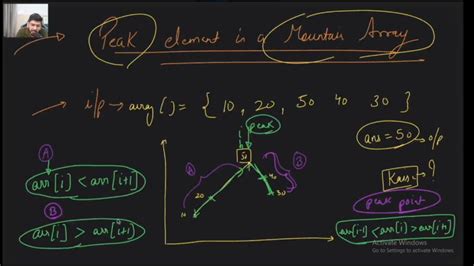 → Peak element in a Mountain Array
→ i/p → array[] = { 10, 20, 50 40 30 }
peak
ans = 50 → o/p
A
arr[i] < arr[i+1]
B
arr[i] > arr[i+1]
i
50
A
B
20
40
10
30
?
peak point
arr[i-1] < arr[i] > arr[i+1]
Activate Windows
Go to Settings to activate Windows.